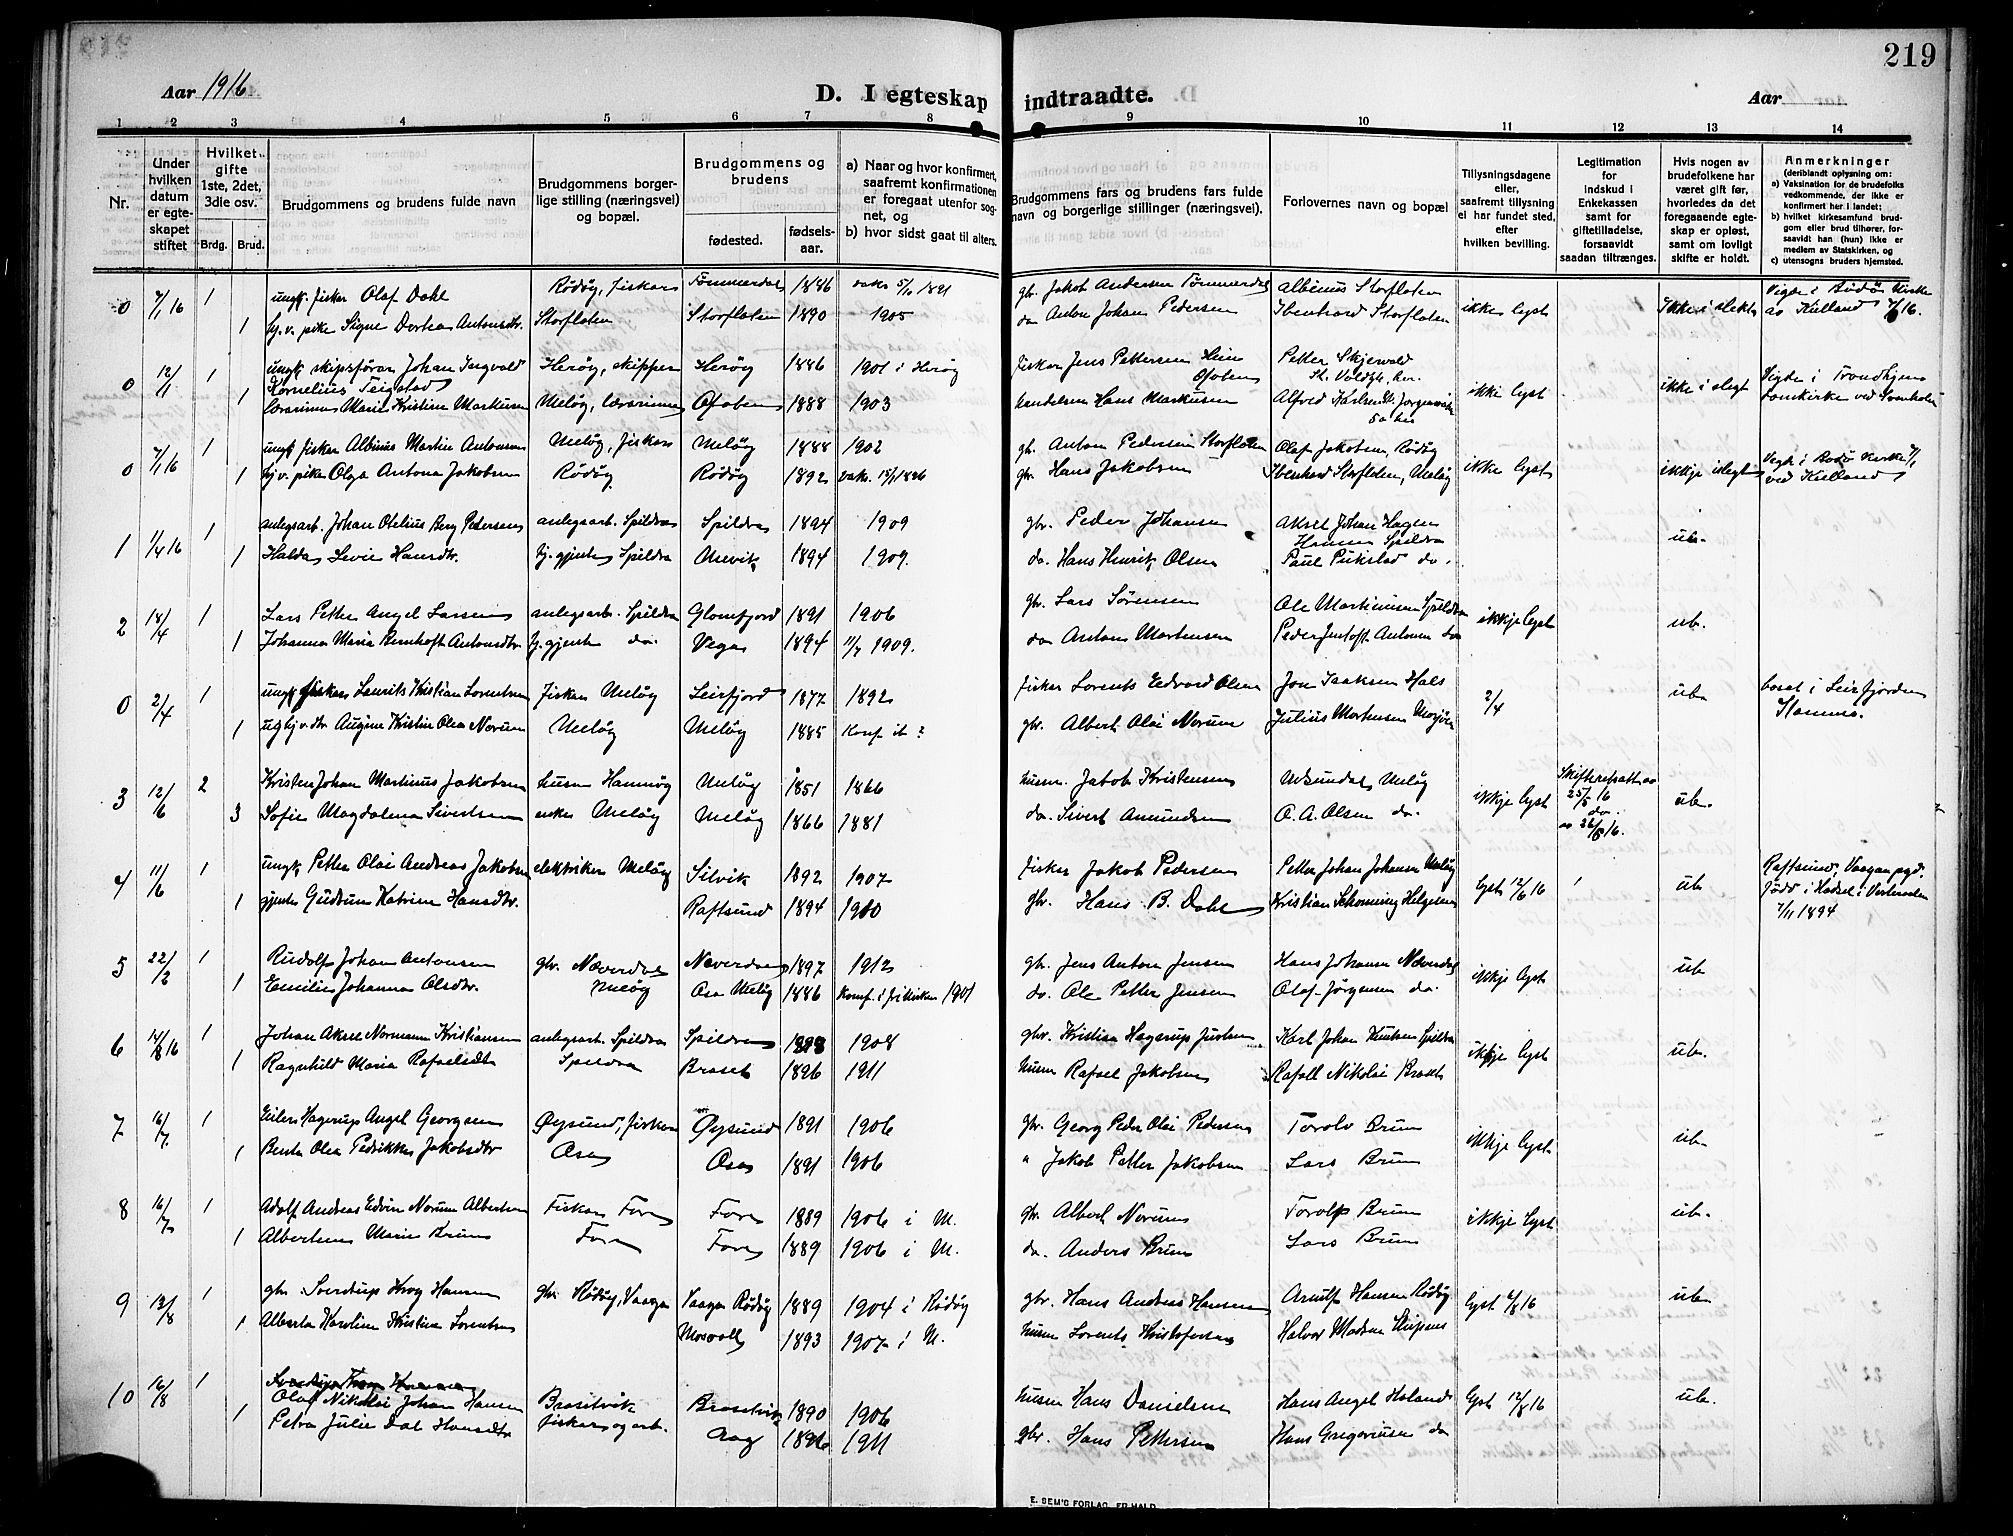 219
Aar 1916
D. I egteskap indtraadte.
Aar
1 2 3 4 5 6 7 8 9 10 11 12 13 14
Nr.
Under hvilken datum er egteskapet stiftet
Hvilket gifte 1ste, 2det, 3die osv.
Brdg. Brud.
Brudgommens og brudens fulde navn
Brudgommens borgerlige stilling (næringsvei) og bopæl.
Brudgommens og brudens
fødested. fødselsaar.
a) Naar og hvor konfirmert, saafremt konfirmationen er foregaat utenfor sognet, og
b) hvor sidst gaat til alters.
Brudgommens fars og brudens fars fulde navn og borgerlige stillinger (næringsvei).
Forlovernes navn og bopæl
Tillysningsdagene eller, saafremt tillysning ei har fundet sted, efter hvilken bevilling.
Legitimation for indskud i Enkekassen samt for giftetilladelse, forsaavidt saadan tiltrænges.
Hvis nogen av brudefolkene har været gift før, hvorledes da det foregaaende egteskap er opløst, samt om lovligt skifte er holdt.
Anmerkninger (deriblandt oplysning om:
a) Vaksination for de brudefolks vedkommende, der ikke er konfirmert her i landet;
b) hvilket kirkesamfund brudgom eller brud tilhører, forsaavidt han (hun) ikke er medlem av Statskirken, og
c) utensogns bruders hjemsted.
0 7/1 16 1 ungk. fisker Olaf Dahl Rødøy, fisker Tømmerdal 1886 vaks 5/1 1891 gbr. Jakob Andersen Tømmerdal Albinus Storfloten ikke lyst Ikke i slekt Vigde i Rødø kirke
1 hj.v. pike Signe Dorthea Antonsdtr. Storfloten Storfloten 1890 1905 do Anton Johan Pedersen Ibenhard Storfloten av Kielland 7/1 16.
0 12/1 1 ungk. skipsfører Johan Ingvald Herøy, skipper Herøy 1886 1901 i Herøy fisker Jens Pettersen Petter Skjervold
1 Kornelius Teigstad ikke lyst ikke i slegt Vigde i Trondhjems
lærerinne Marie Kristine Markusen Meløy, lærerinne Ofoten 1888 1903 handelsm Hans Markusen Domkirke
0 7/1 16 1 ungk fisker Albinus Martin Antonsen Meløy, fisker Meløy 1888 1902 gb. Anton Pedersen Storfloten Olaf Jakobsen, Rødøy ikke lyst ikkje i slegt Vigde i Rødø kirke 7/1
1 hj.v. pike Olga Antona Jakobsen Rødøy Rødøy 1892 vaks. 15/1 1896 gbr. Hans Jakobsen Ibenhard Storfloten, Meløy ved Kielland
1 11/4 16 1 anlegsarb. Johan Otelius Berg Pedersen anlegsarb. Spildra Spildra 1894 1909 gbr. Peder Johansen Aksel Johan Hagen Hansen Spildra ub.
1 Halda Sevie Hansdtr. hj. gjente Spildra 1894 1909. do. Hans Henrik Olsen Paul Pukstad do.
2 18/4 1 Lars Petter Angel Larsen anlegsarb. Spildra Glomfjord 1891 1906 gbr. Lars Sørensen Ole Martinusen Spildra ikkje lyst ub.
1 Johanna Maria Bernhoft Antonsdtr. hj. gjente do. Vega 1894 11/7 1909. do Anton Martinsen Peder Jentoft Antonsen do
0 2/4 1 ungk fisker Laurits Kristian Lorentsen fisker Meløy Leirfjord 1877 1892 fisker Lorents Edvard Olsen Jon Isaksen Hals 2/4 ub. bosat i Leirfjorden
1 ug hj.v.dtr Augine Kristine Olea Norum Meløy Meløy 1885 Konf. ik? gbr. Albert Olai Norum Julius Mortensen
3 12/6 2 Kristen Johan Martinus Jakobsen husm Hamnøy Meløy 1851 1866 husm. Jakob Kristensen Meløy ikkje lyst Skifteretsatt. av 25/5 16 ub.
3 Sofie Magdalena Sivertsen enke Meløy Meløy 1866 1881 do. Sivert Amundsen O. A. Olsen do. do. av 26/5 16.
4 11/6 1 ungk. Petter Olai Andreas Jakobsen elektriker Meløy Selvik 1892 1907 fisker Jakob Pedersen Petter Johan Johansen Meløy lyst 12/6 16 ub Raftsund, Vaagan pgd.
1 gjente Gudrun Katrine Hansdtr. Raftsund 1894 1910 gbr. Hans B. Dahl Kristian Schonning Helgesen født i Hadsel i Vesteraalen 7/11 1894
5 22/2 1 Rudolf Johan Antonsen gbr. Næverdal Neverdal 1897 1912 gbr. Jens Anton Jensen Hans Johansen Neverdal ikkje lyst ub
1 Emilie Johanna Olsdtr. Meløy Osa Meløy 1886 Konf. i frikirken 1901 do. Ole Petter Jensen Olaf Jørgensen do.
6 14/8 16 1 Johan Aksel Normann Kristiansen anlegsarb. Spildra Spildra 1893 1908 gbr. Kristian Hagerup Karl Johan Knutsen Spildra ikkje lyst ub.
1 Ragnhild Maria Rafaelsdt. Spildra Braset 1896 1911 husm Rafael Jakobsen Rafael Nikolai Braset
7 16/7. 1 Eilert Hagerup Angel Georgsen Øysund, fisker Øysund 1891 1906 gbr. Georg Peder Olai Pedersen Torolv Brun ikkje lyst. ub.
1 Benta Olea Pedrikke Jakobsdtr Osa Osa 1891 1906 " Jakob Petter Jakobsen Lars Brun
8 16/7 1 Adolf Andreas Edvin Norum Albertsen Fisker Fore Fore 1889 1906 i M. gbr. Albert Norum Torolf Brun ikkje lyst ub.
1 Albertine Marie Brun Fore Fore 1889 1906 i M. do. Anders Brun Lars Brun
9 13/8 1 gbr. Sverdrup Krog Hansen gbr. Rødøy, Vaaga Vaaga Rødøy 1889 1904 i Rødøy gbr. Hans Andreas Hansen Arnulf Hansen Rødøy lyst 6/8 16 ub.
1 Alberta Karoline Kristine Lorentsen Mosvoll 1893 1907 i M. husm Lorents Kristofersen Halvor Madsen
10 16/8 1 Olaf Nikolai Johan Hansen Brasetvik Brasetvik 1890 1906 husm Hans Danielsen Hans Angel Høland lyst 12/8 16 ub.
1 Petra Julie Dal Hansdtr fisker og arb. Aag 1896 1911 gbr. Hans Pettersen Hans Gregoriusen do
E. SEM'S FORLAG, FR.HALD